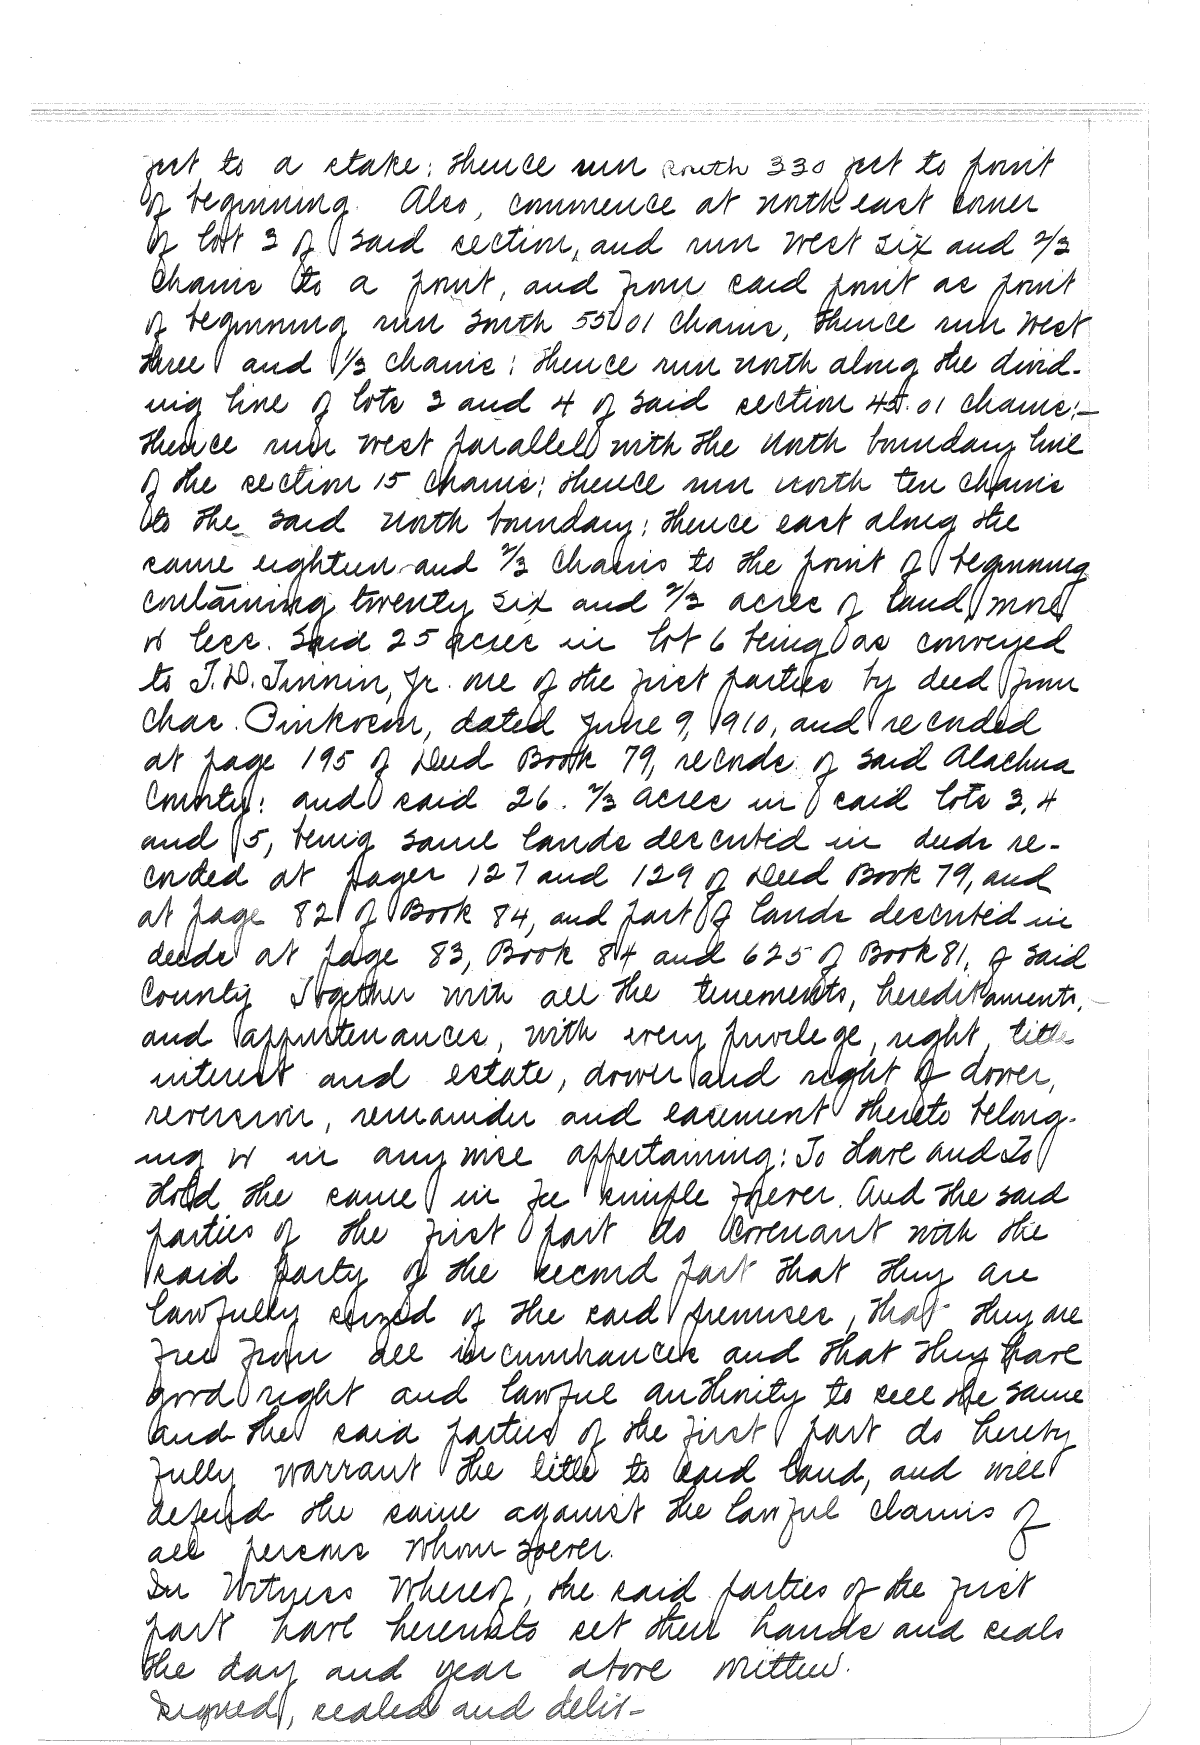 feet to a stake: thence run south 330 feet to point
of beginning. Also, commence at north east corner
of lot 3 of said section, and run west six and 2/3
chains to a point, and from said point as point
of beginning run south 55.01 chains, thence run west
three and 1/3 chains: thence run north along the divid-
ing line of lots 3 and 4 of said section 45.01 chains:-
thence run west parallel with the north boundary line
of the section 15 chains: thence run north ten chains
to the said north boundary: thence east along the
same eighteen and 1/3 chains to the point of beginning
containing twenty six and 2/3 acres of land more
or less. Said 25 acres in lot 6 being as conveyed
to J.D. Tinnin, Jr. one of the first parties by deed from
Chas. Pinkoson, dated June 9, 1910, and recorded
at page 195 of Deed Book 79, records of said Alachua
County: and said 26. 2/3 acres in said lots 3, 4
and 5, being same lands described in deeds re-
corded at pages 127 and 129 of Deed Book 79, and
at page 82 of Book 84, and part of lands described in
deeds at page 83, Book 84 and 625 of Book 81, of said
County Together with all the tenements, hereditaments,
and appurtenances, with every privilege, right, title
interest and estate, dower and right of dower,
reversion, remainder and easement thereto belong-
ing or in any wise appertaining: To Have and To
Hold the same in fee simple forever. And the said
parties of the first part do covenant with the
said party of the second part that they are
lawfully seized of the said premises, that they are
free from all incumbrances and that they have
good right and lawful authority to sell the same
and the said parties of the first part do hereby
fully warrant the title to said land, and will
defend the same against the lawful claims of
all persons whom soever.
In Witness Whereof, the said parties of the first
part have hereunto set their hands and seals
the day and year above written.
Signed, sealed and deliv-